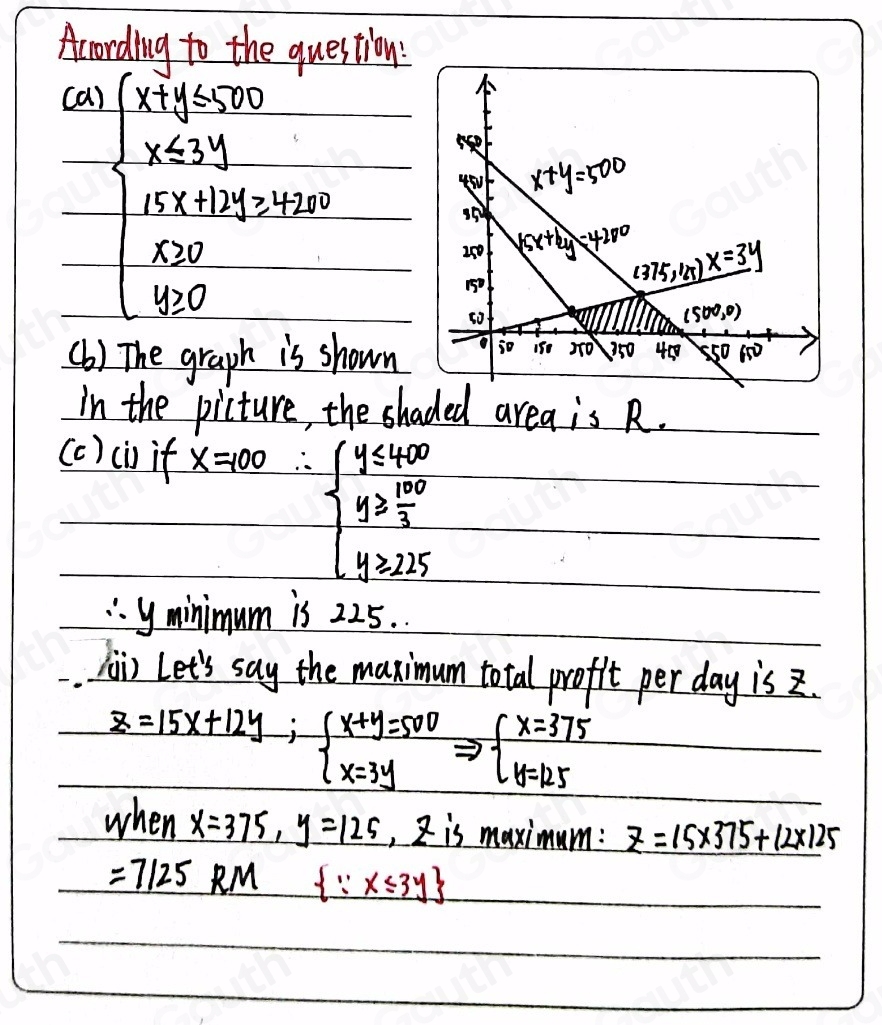 According to the question:
(a) { x+y≤500
x≤3y
15x+12y≥4200
x≥0
y≥0
550
450
350
250
150
50
0 50 150 250 350 450 550 650
x+y=500
15x+12y=4200
(375,125) x=3y
(500,0)
(b) The graph is shown
in the picture, the shaded area is R.
(c) (i) if x=100 ∴ { y≤400
y≥100/3
y≥225
∴ y minimum is 225..
(ii) Let's say the maximum total profit per day is z.
z=15x+12y ; { x+y=500 ⇒ { x=375
x=3y y=125
when x=375, y=125, z is maximum: z=15×375+12×125
=7125 RM {∵ x≤3y}
Gauth